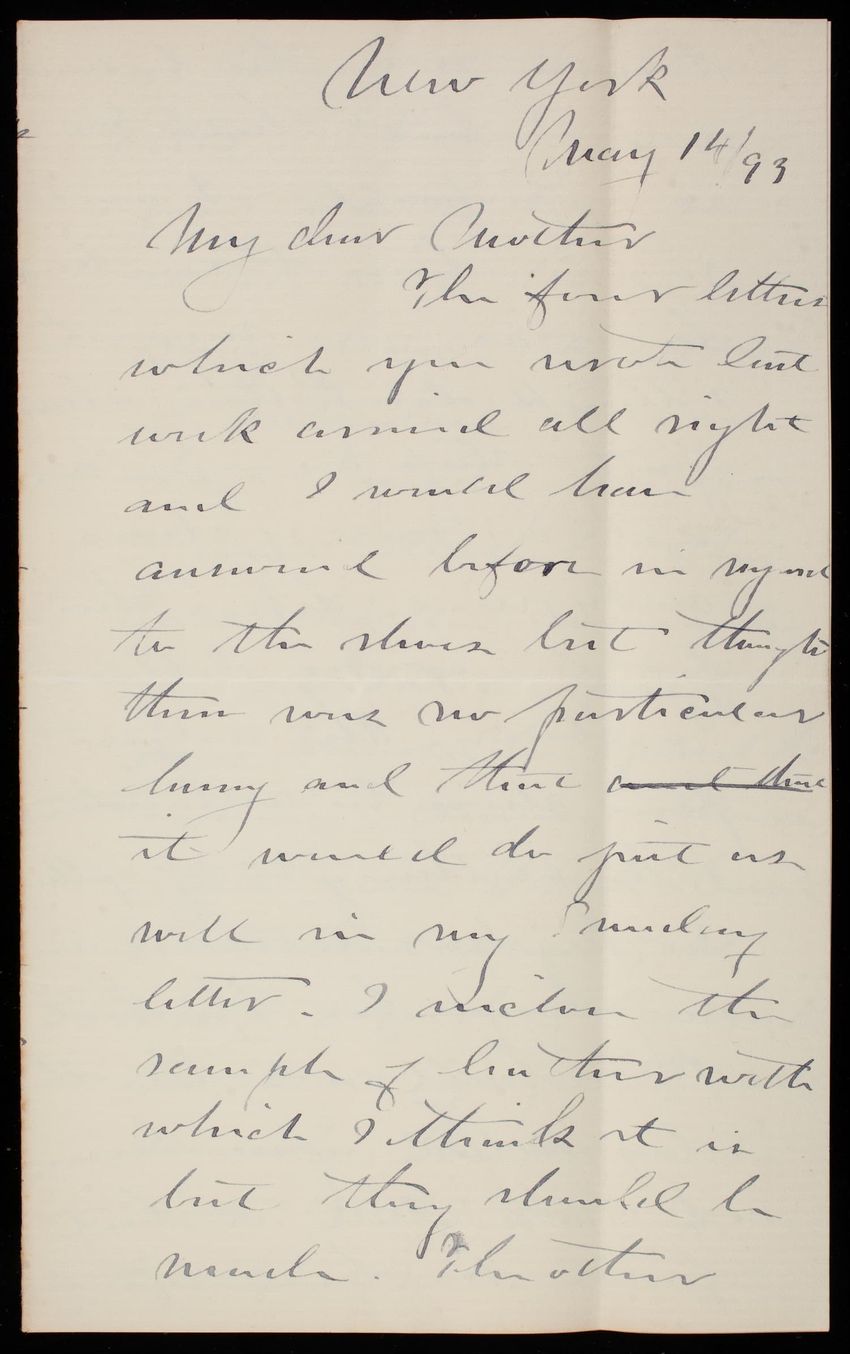 New York
May 14/93
My dear Mother
The four letters
which you wrote last
week arrived all right
and I would have
answered before in regard
to the shoes but thought
there was no particular
hurry and that and that
it would do just as
well in my Sunday
letter. I inclose the
sample of leather with
which I think it is
best they should be
made. The other